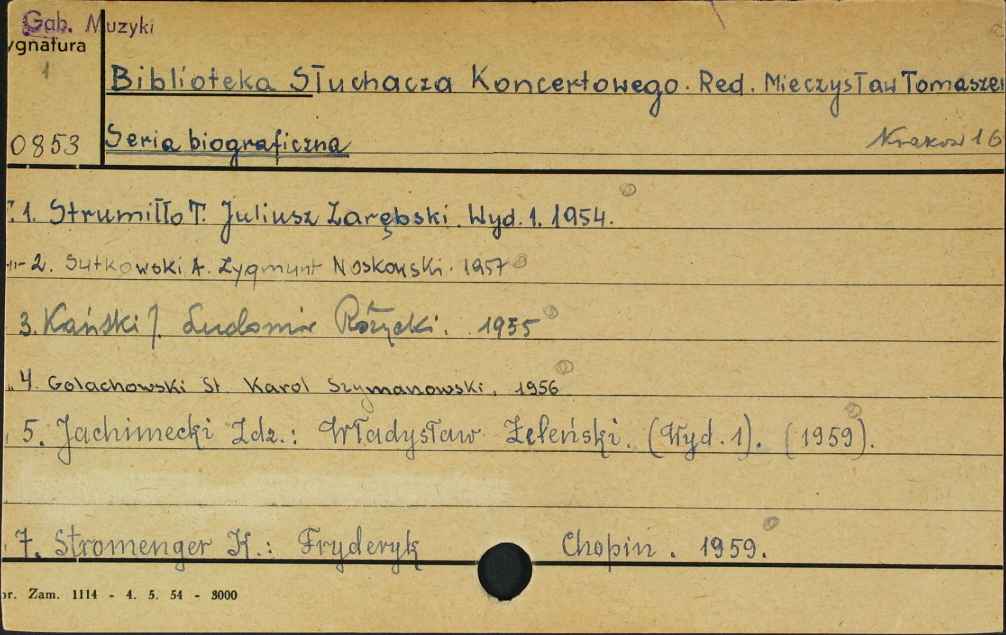 Gab. Muzyki
ygnatura
1
Biblioteka Słuchacza Koncertowego. Red. Mieczysław Tomasze
0853
Seria biograficzna
Krakow 16
1. Strumiłło T. Juliusz Zarębski. Wyd. 1. 1954.
-"- 2. Sutkowski A. Zygmunt Noskowski. 1957
3. Kański J. Ludomir Różycki. 1955
" 4. Golachowski St. Karol Szymanowski. 1956
5. Jachimecki Zdz.: Władysław Żeleński. (Wyd. 1). (1959).
7. Stromenger K.: Fryderyk Chopin. 1959.
or. Zam. 1114 - 4. 5. 54 - 3000